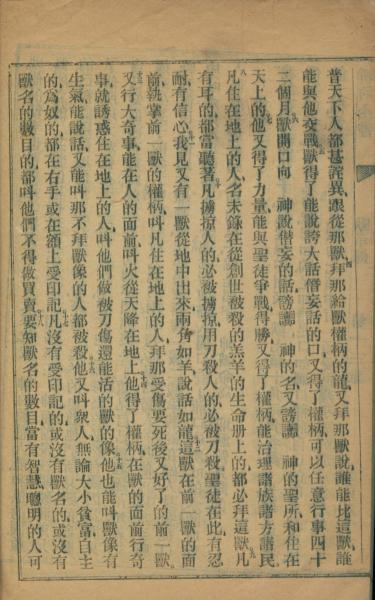 普天下人都甚詫異跟從那獸四拜那給獸權柄的龍又拜那獸說誰能比這獸誰
能與他交戰五獸得了能說誇大話僭妄話的口又得了權柄可以任意行事四十
二個月六獸開口向 神說僭妄的話謗讟 神的名又謗讟 神的聖所和住在
天上的七他又得了力量能與聖徒爭戰得勝又得了權柄能治理諸族諸方諸民
八凡住在地上的人名未錄在從創世被殺的羔羊的生命册上的都必拜這獸九凡
有耳的都當聽著十凡擄掠人的必被擄掠用刀殺人的必被刀殺聖徒在此有忍
耐有信心十一我見又有一獸從地中出來兩角如羊說話如龍十二這獸在前一獸的面
前執掌前一獸的權柄叫凡住在地上的人拜那受傷要死後又好了的前一獸
十三又行大奇事能在人的面前叫火從天降在地上十四他得了權柄在獸的面前行奇
事就誘惑住在地上的人叫他們做被刀傷還能活的獸的像十五他也能叫獸像有
生氣能說話又能叫那不拜獸像的人都被殺十六他又叫衆人無論大小貧富自主
的爲奴的都在右手或在額上受印記十七凡沒有受印記的或沒有獸名的或沒有
獸名的數目的都叫他們不得做買賣十八要知獸名的數目當有智慧聰明的人可